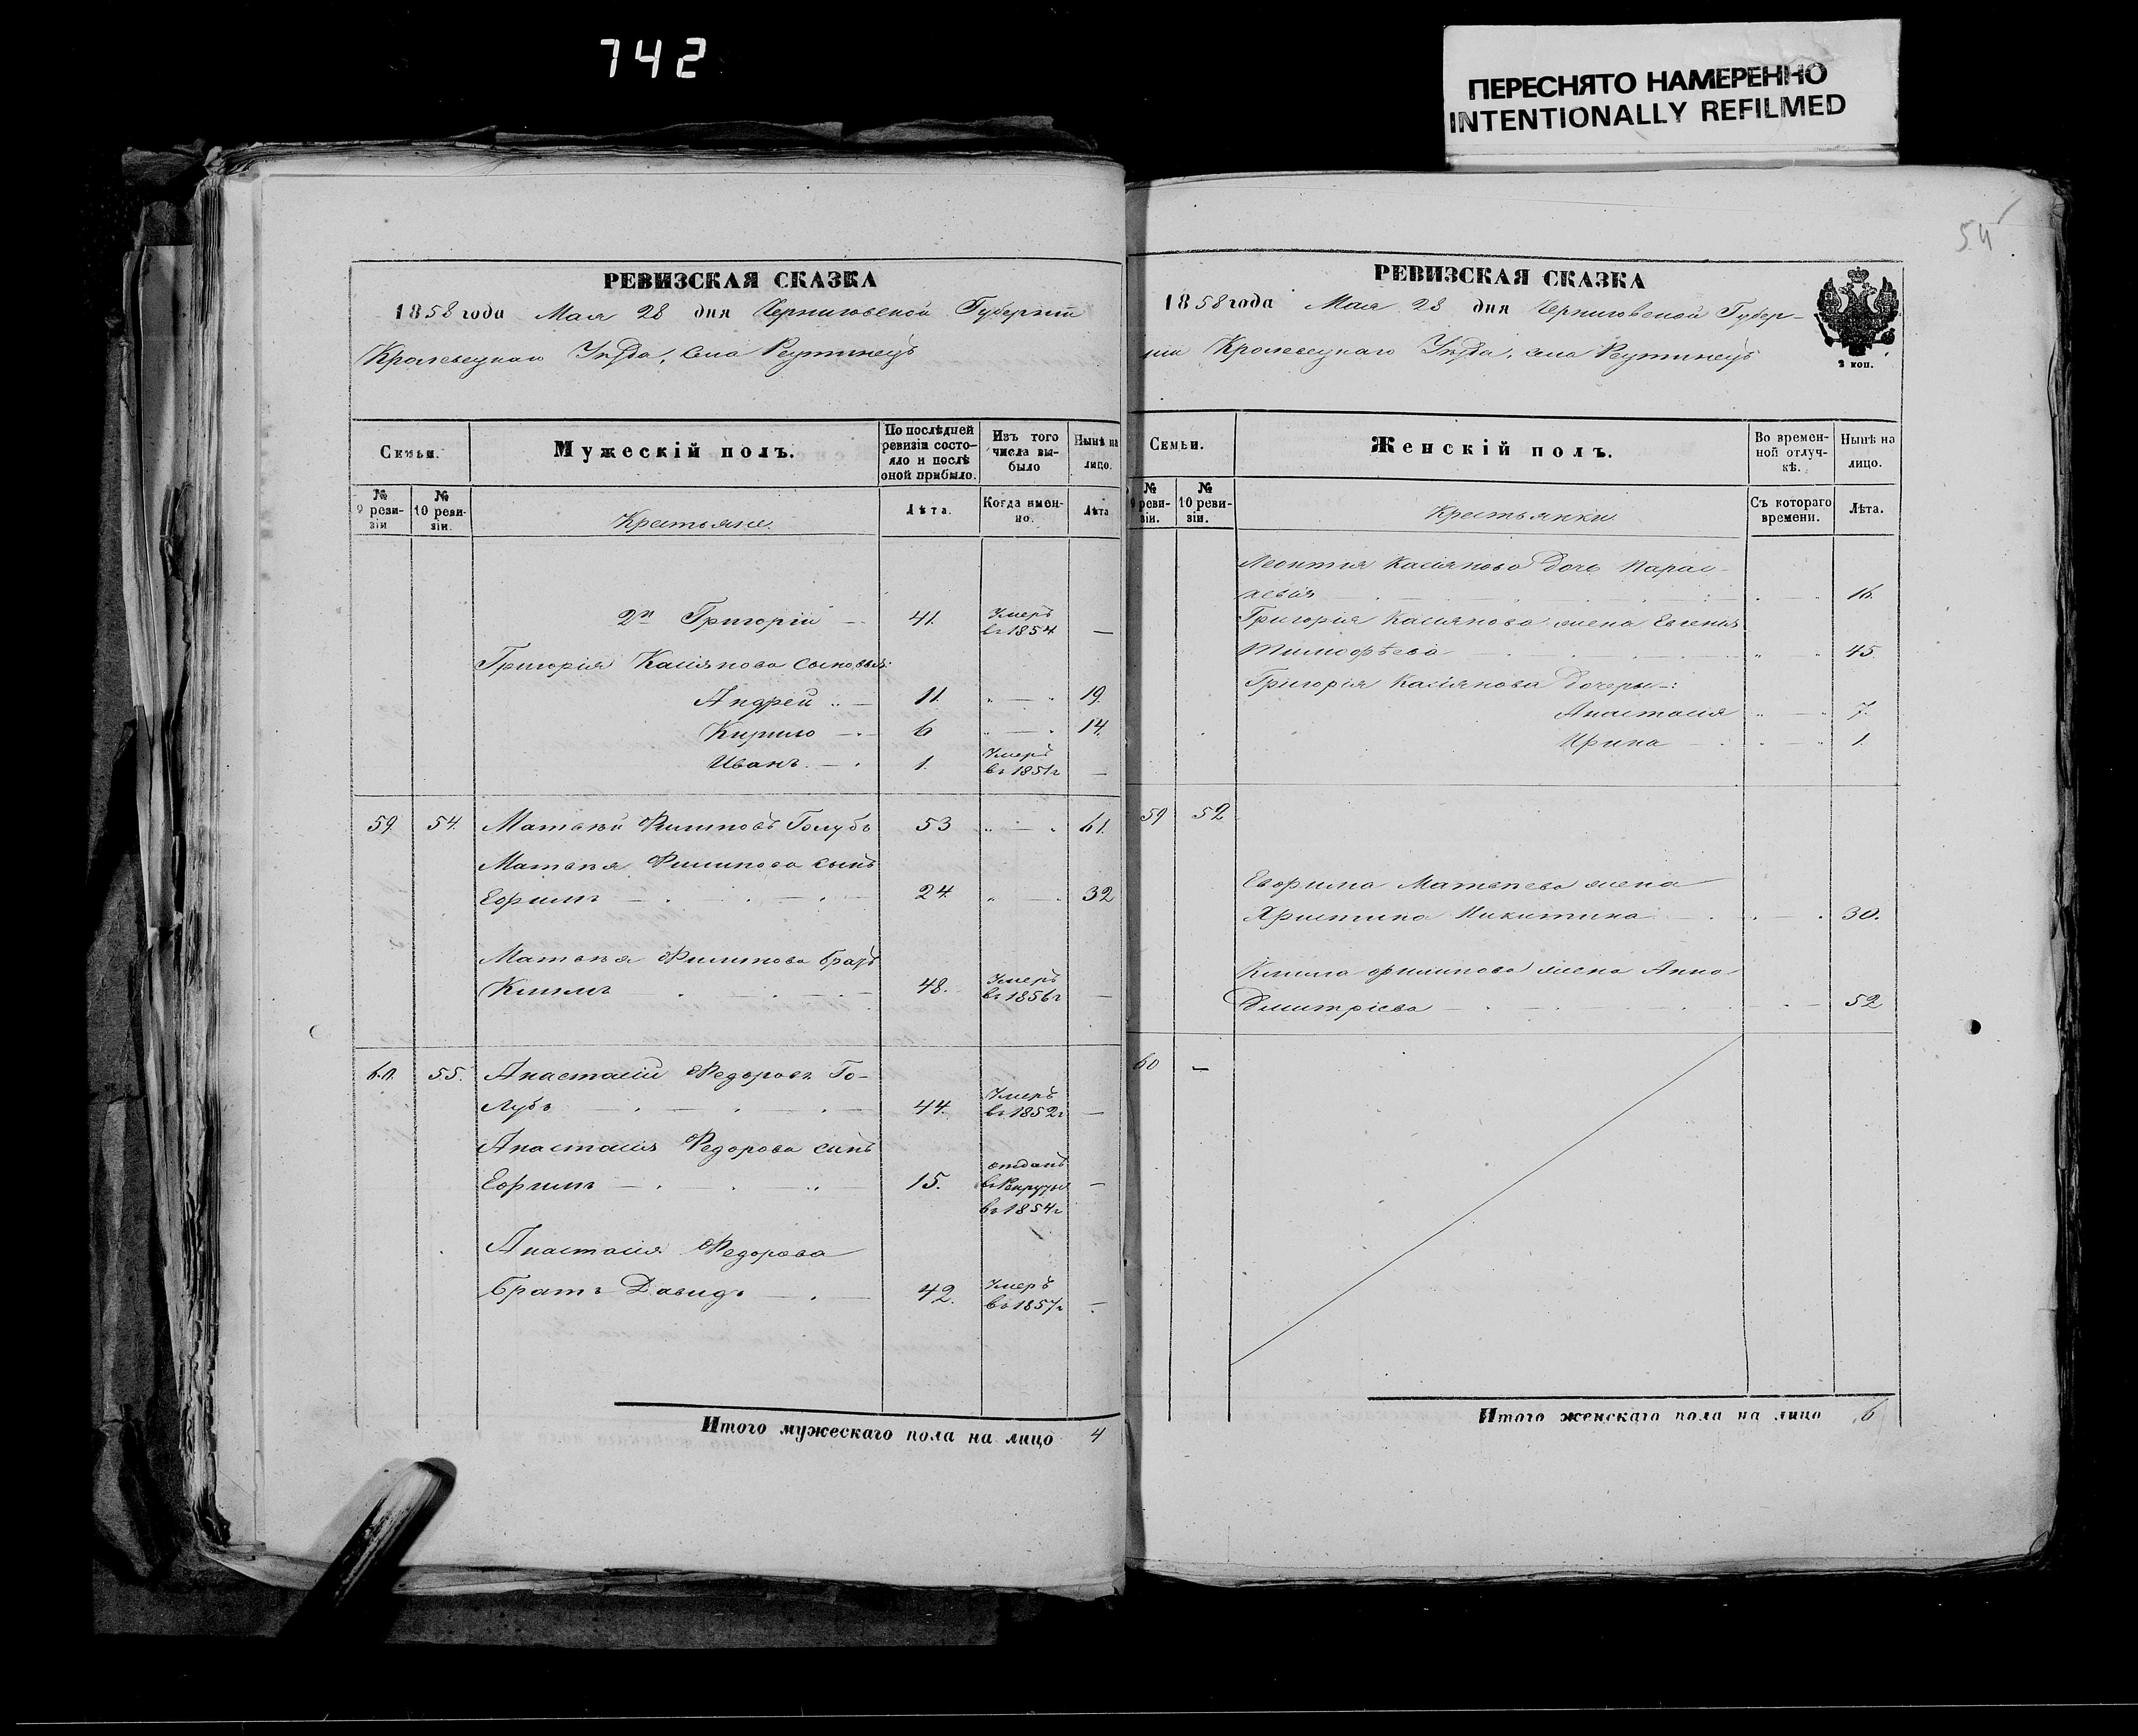 742
ПЕРЕСНЯТО НАМЕРЕННО
INTENTIONALLY REFILMED
54
РЕВИЗСКАЯ СКАЗКА
1858 года Мая 28 дня Черниговской Губерніи
Кролевецкаго Уѣзда, села Реутинецъ
Семьи.
Мужескій полъ.
По послѣдней ревизіи состо-
яло и послѣ
оной прибыло.
Изъ того
числа вы-
было
Нынѣ на
лицо.
№
9 реви-
зіи
№
10 реви-
зіи.
Крестьяне
Лѣта.
Когда имен-
но.
Лѣта
2й Григорій 41. Умеръ
въ 1854 —
Григорія Касіянова сыновья:
Андрей 11. 19.
Кирило 6 14.
Иванъ 1. Умеръ
въ 1851г —
59. 54. Матвѣй Филиповъ Голубъ 53 61.
Матвѣя Филипова сынъ
Ефимъ 24. 32
Матвѣя Филипова братъ
Климъ 48. Умеръ
въ 1856г —
60. 55. Анастасій Федоровъ Го-
лубъ 44. Умеръ
въ 1852г —
Анастасія Федорова сынъ
Ефимъ 15. отданъ
въ рекруты
въ 1854г —
Анастасія Федорова
братъ Давидъ 42. Умеръ
въ 1857г —
Итого мужескаго пола на лицо 4
РЕВИЗСКАЯ СКАЗКА
1858 года Мая 28 дня Черниговской Губер-
ніи Кролевецкаго Уѣзда, села Реутинецъ
2 коп.
Семьи.
Женскій полъ.
Во времен-
ной отлуч-
кѣ.
Нынѣ на
лицо.
№
9 реви-
зіи.
№
10 реви-
зіи.
Крестьянки
Съ котораго
времени.
Лѣта.
Леонтія Касіянова дочь Парас-
кевія 16.
Григорія Касіянова жена Евгенія
Тимофѣева 45.
Григорія Касіянова дочеры:
Анастасія 7.
Ирина 1.
59 52
Ефима Матвѣева жена
Христина Никитина 30.
Клима Филипова жена Анна
Дмитріева 52
60 —
Итого женскаго пола на лицо 6